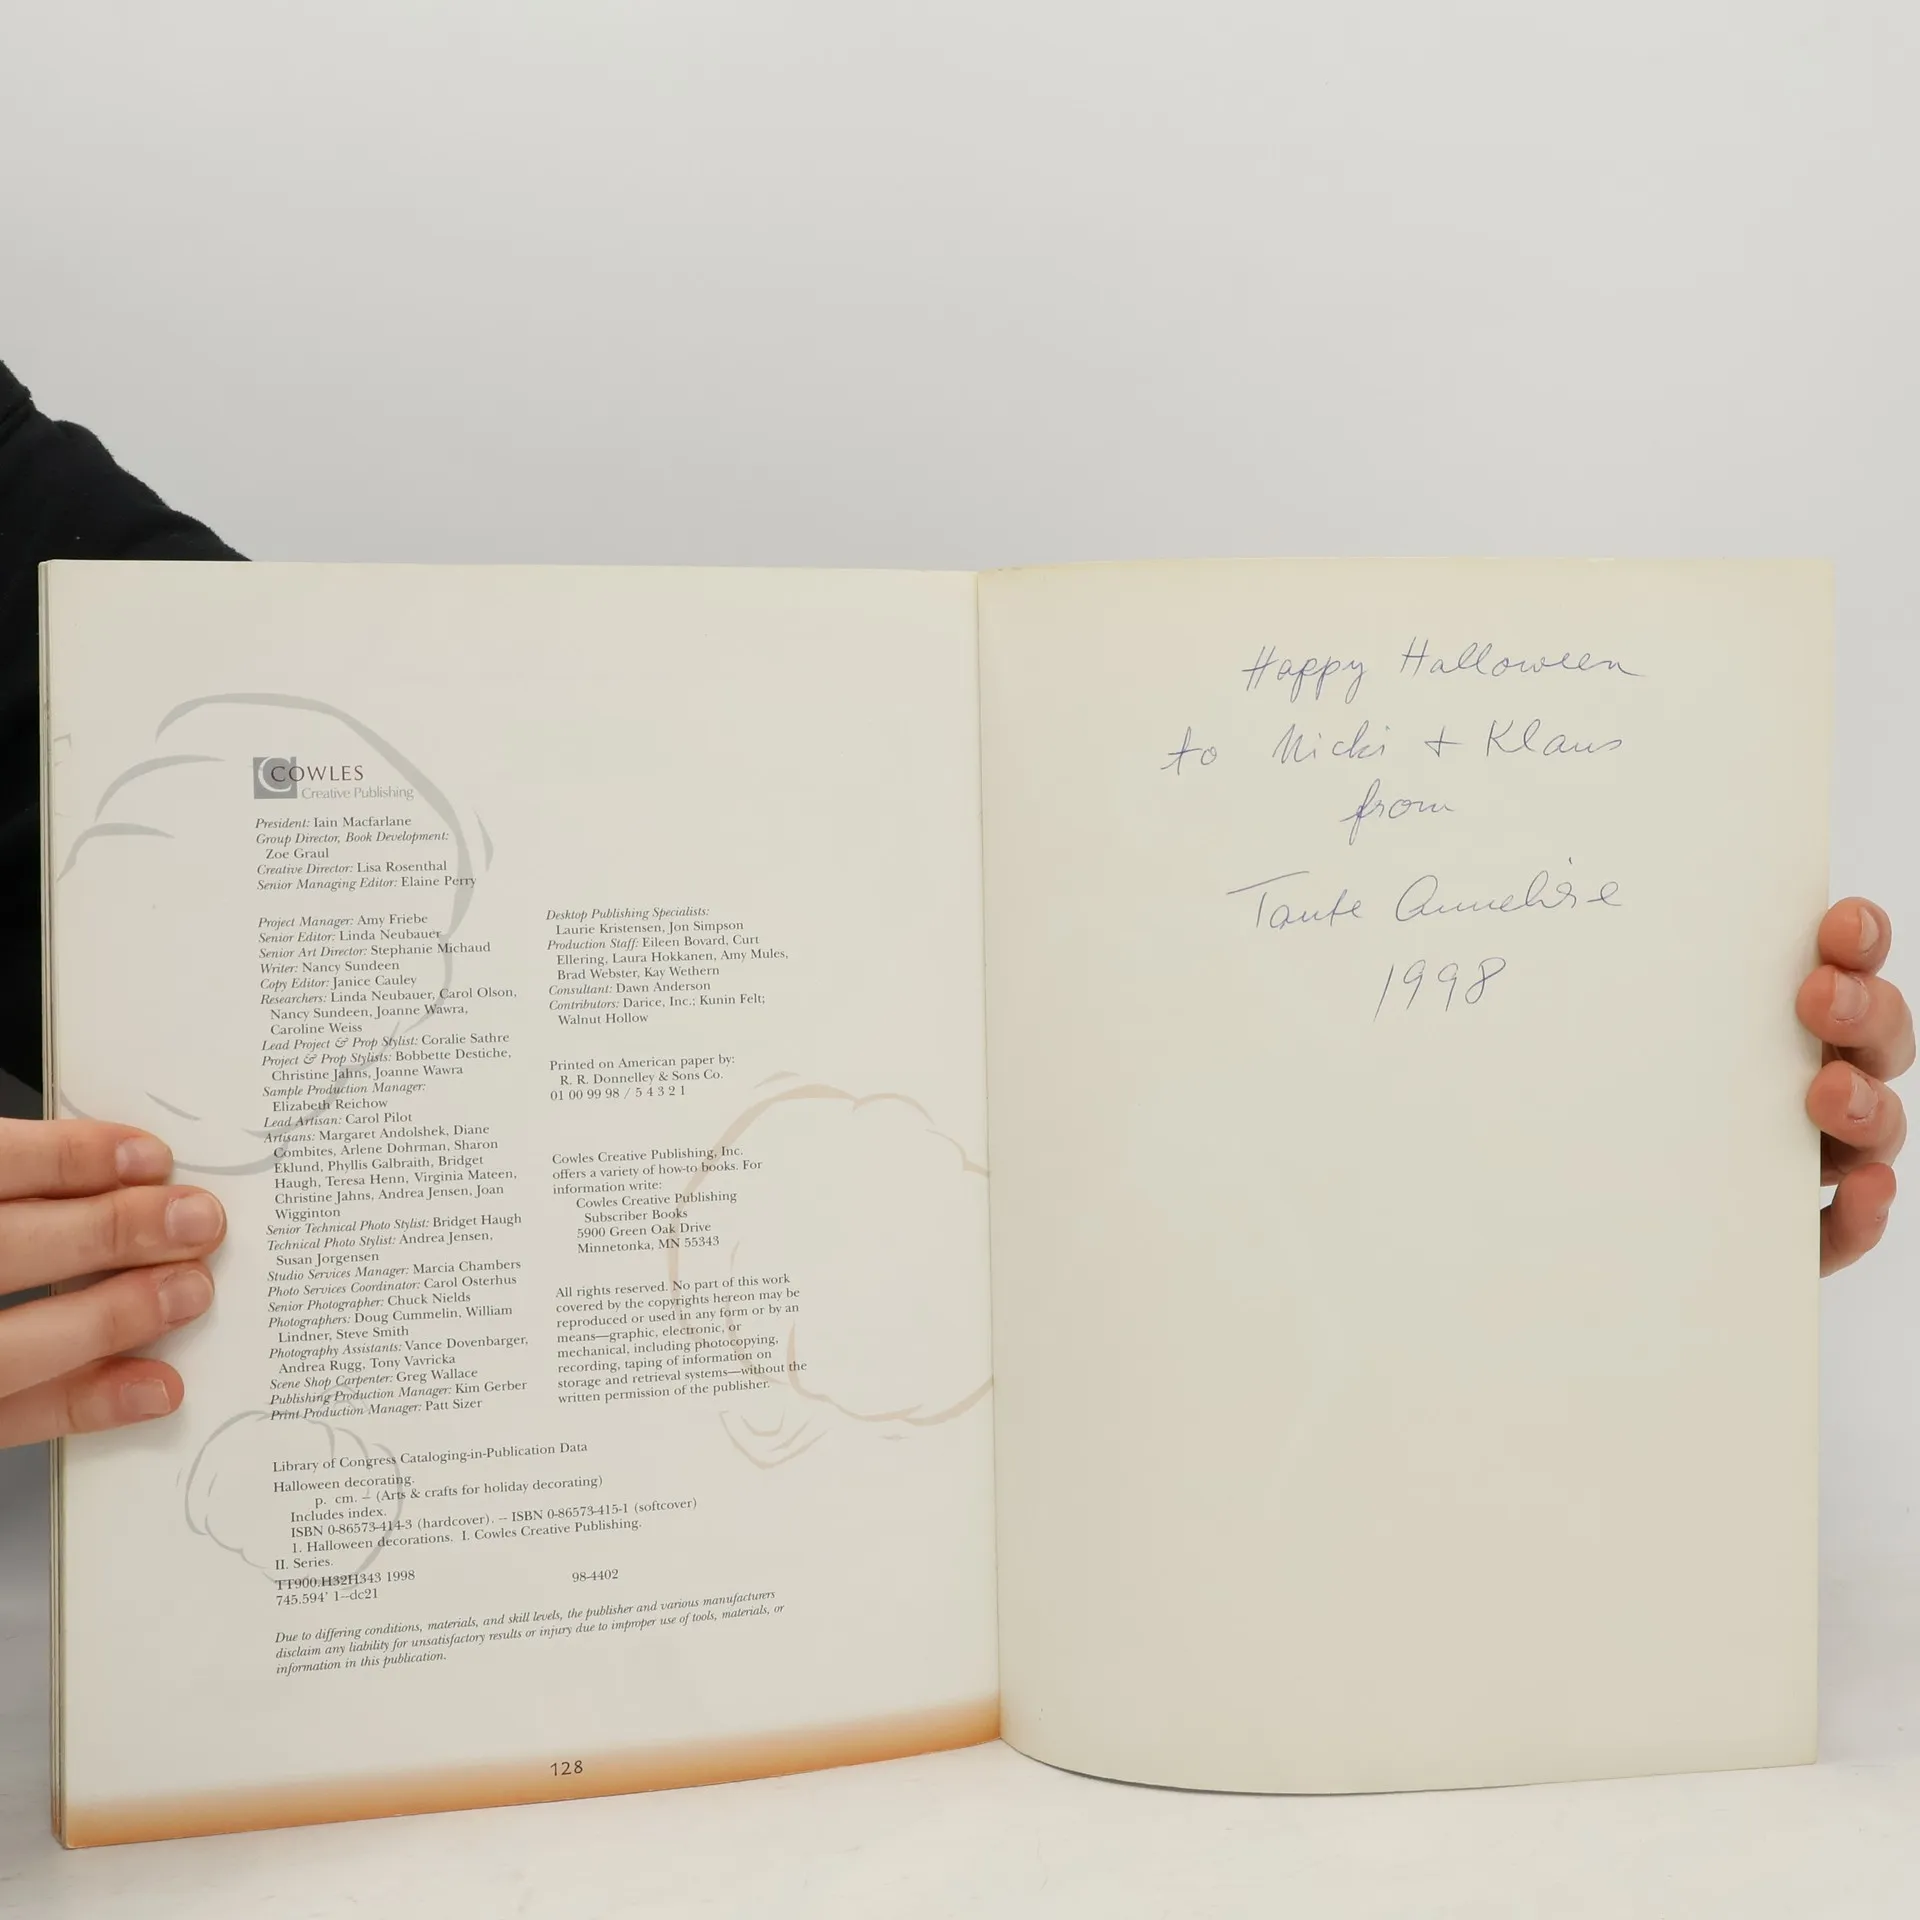 COWLES
Creative Publishing
President: Iain Macfarlane
Group Director, Book Development:
Zoe Graul
Creative Director: Lisa Rosenthal
Senior Managing Editor: Elaine Perry
Project Manager: Amy Friebe
Senior Editor: Linda Neubauer
Senior Art Director: Stephanie Michaud
Writer: Nancy Sundeen
Copy Editor: Janice Cauley
Researchers: Linda Neubauer, Carol Olson,
Nancy Sundeen, Joanne Wawra,
Caroline Weiss
Lead Project & Prop Stylist: Coralie Sathre
Project & Prop Stylists: Bobbette Destiche,
Christine Jahns, Joanne Wawra
Sample Production Manager:
Elizabeth Reichow
Lead Artisan: Carol Pilot
Artisans: Margaret Andolshek, Diane
Combites, Arlene Dohrman, Sharon
Eklund, Phyllis Galbraith, Bridget
Haugh, Teresa Henn, Virginia Mateen,
Christine Jahns, Andrea Jensen, Joan
Wigginton
Senior Technical Photo Stylist: Bridget Haugh
Technical Photo Stylist: Andrea Jensen,
Susan Jorgensen
Studio Services Manager: Marcia Chambers
Photo Services Coordinator: Carol Osterhus
Senior Photographer: Chuck Nields
Photographers: Doug Cummelin, William
Lindner, Steve Smith
Photography Assistants: Vance Dovenbarger,
Andrea Rugg, Tony Vavricka
Scene Shop Carpenter: Greg Wallace
Publishing Production Manager: Kim Gerber
Print Production Manager: Patt Sizer
Desktop Publishing Specialists:
Laurie Kristensen, Jon Simpson
Production Staff: Eileen Bovard, Curt
Ellering, Laura Hokkanen, Amy Mules,
Brad Webster, Kay Wethern
Consultant: Dawn Anderson
Contributors: Darice, Inc.; Kunin Felt;
Walnut Hollow
Printed on American paper by:
R. R. Donnelley & Sons Co.
01 00 99 98 / 5 4 3 2 1
Cowles Creative Publishing, Inc.
offers a variety of how-to books. For
information write:
Cowles Creative Publishing
Subscriber Books
5900 Green Oak Drive
Minnetonka, MN 55343
All rights reserved. No part of this work
covered by the copyrights hereon may be
reproduced or used in any form or by an
means—graphic, electronic, or
mechanical, including photocopying,
recording, taping of information on
storage and retrieval systems—without the
written permission of the publisher.
Library of Congress Cataloging-in-Publication Data
Halloween decorating.
p. cm. – (Arts & crafts for holiday decorating)
Includes index.
ISBN 0-86573-414-3 (hardcover). -- ISBN 0-86573-415-1 (softcover)
1. Halloween decorations. I. Cowles Creative Publishing.
II. Series.
TT900.H32H343 1998 98-4402
745.594' 1--dc21
Due to differing conditions, materials, and skill levels, the publisher and various manufacturers
disclaim any liability for unsatisfactory results or injury due to improper use of tools, materials, or
information in this publication.
128
Happy Halloween
to Nicki + Klaus
from
Tante Annelise
1998